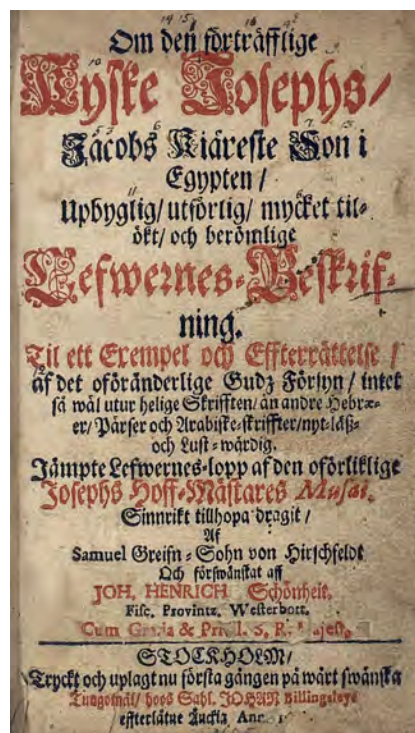 Om den förträfflige
Kyske Josephs/
Jacobs Kiäreste Son i
Egypten /
Upbyglig/ utförlig/ mycket til-
ökt/ och berömlige
Lefwernes-Beskrif-
ning.
Til ett Exempel och Effterrättelse /
af det oföränderlige Gudz Försyn / intet
så wäl utur helige Skrifften/ än andre Hebræ-
er/ Pärser och Arabiske-skriffter/nyt-läß-
och Lust-wärdig.
Jämpte Lefwernes-lopp af den oförliklige
Josephs Hoff-Mästares Musai.
Sinnrikt tillhopa dragit /
Af
Samuel Greifn-Sohn von Hirschfeldt
Och förswänskat aff
JOH. HENRICH Schönheit,
Fisc. Provintz. Westerbott.
Cum Gratia & Privil. S. R. Majest.
STOCKHOLM/
Tryckt och uplagt nu första gången på wårt swänska
Tungomål/ hoos Sahl. JOHAN Billingsleys
effterlåtne Änckia